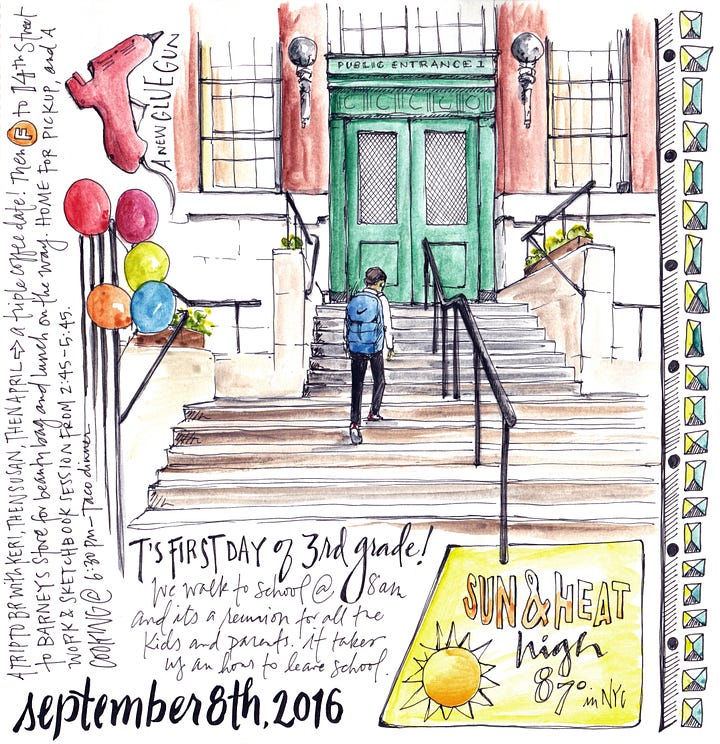 A TRIP TO BR WITH KERI, THEN SUSAN, THEN APRIL => a triple coffee date! Then F to 14th Street
to BARNEY'S Store for beauty bag and lunch on the way. HOME FOR PICKUP and A
WORK & SKETCHBOOK SESSION FROM 2:45-5:45.
COOKING @ 6:30 pm - Taco dinner
A NEW GLUE GUN
PUBLIC ENTRANCE 1
T'S FIRST DAY of 3rd grade!
We walk to school @ 8am
and its a reunion for all the
kids and parents. it takes
us an hour to leave school.
september 8th, 2016
SUN & HEAT
high
87° in NYC